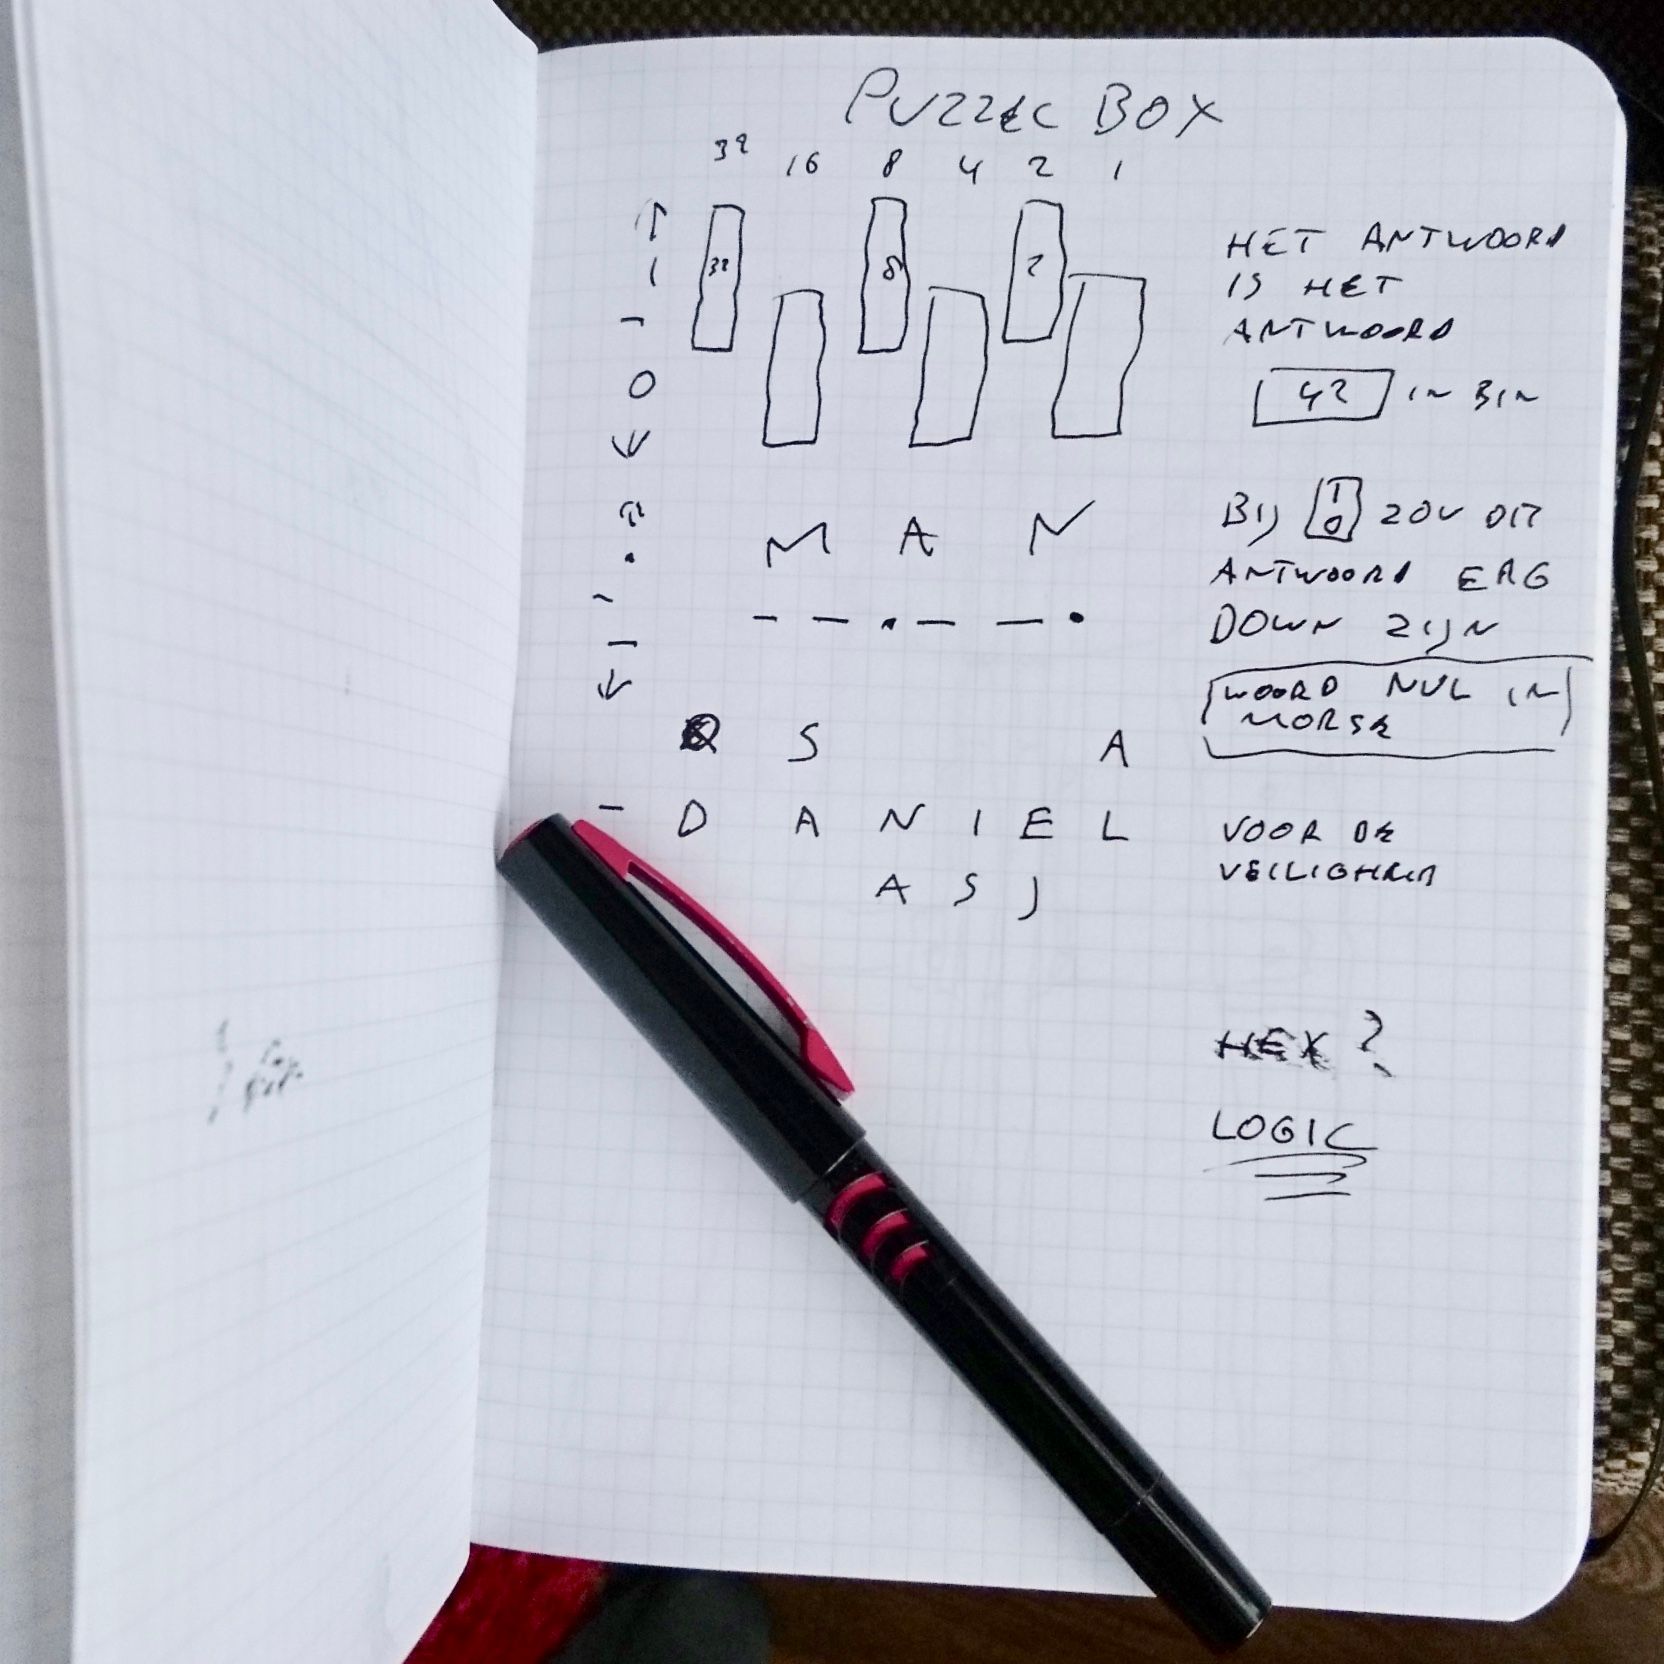 PUZZLE BOX
32 16 8 4 2 1
↑
1
-
0
↓
32 8 2
HET ANTWOORD
IS HET
ANTWOORD
42 IN BIN
↑
•
-
-
↓
M A N
- - • - - •
BIJ 1 0 ZOU DIT
ANTWOORD ERG
DOWN ZIJN
WOORD NUL IN
MORSE
S A
- D A N I E L
A S J
VOOR DE
VEILIGHEID
HEX ?
LOGIC